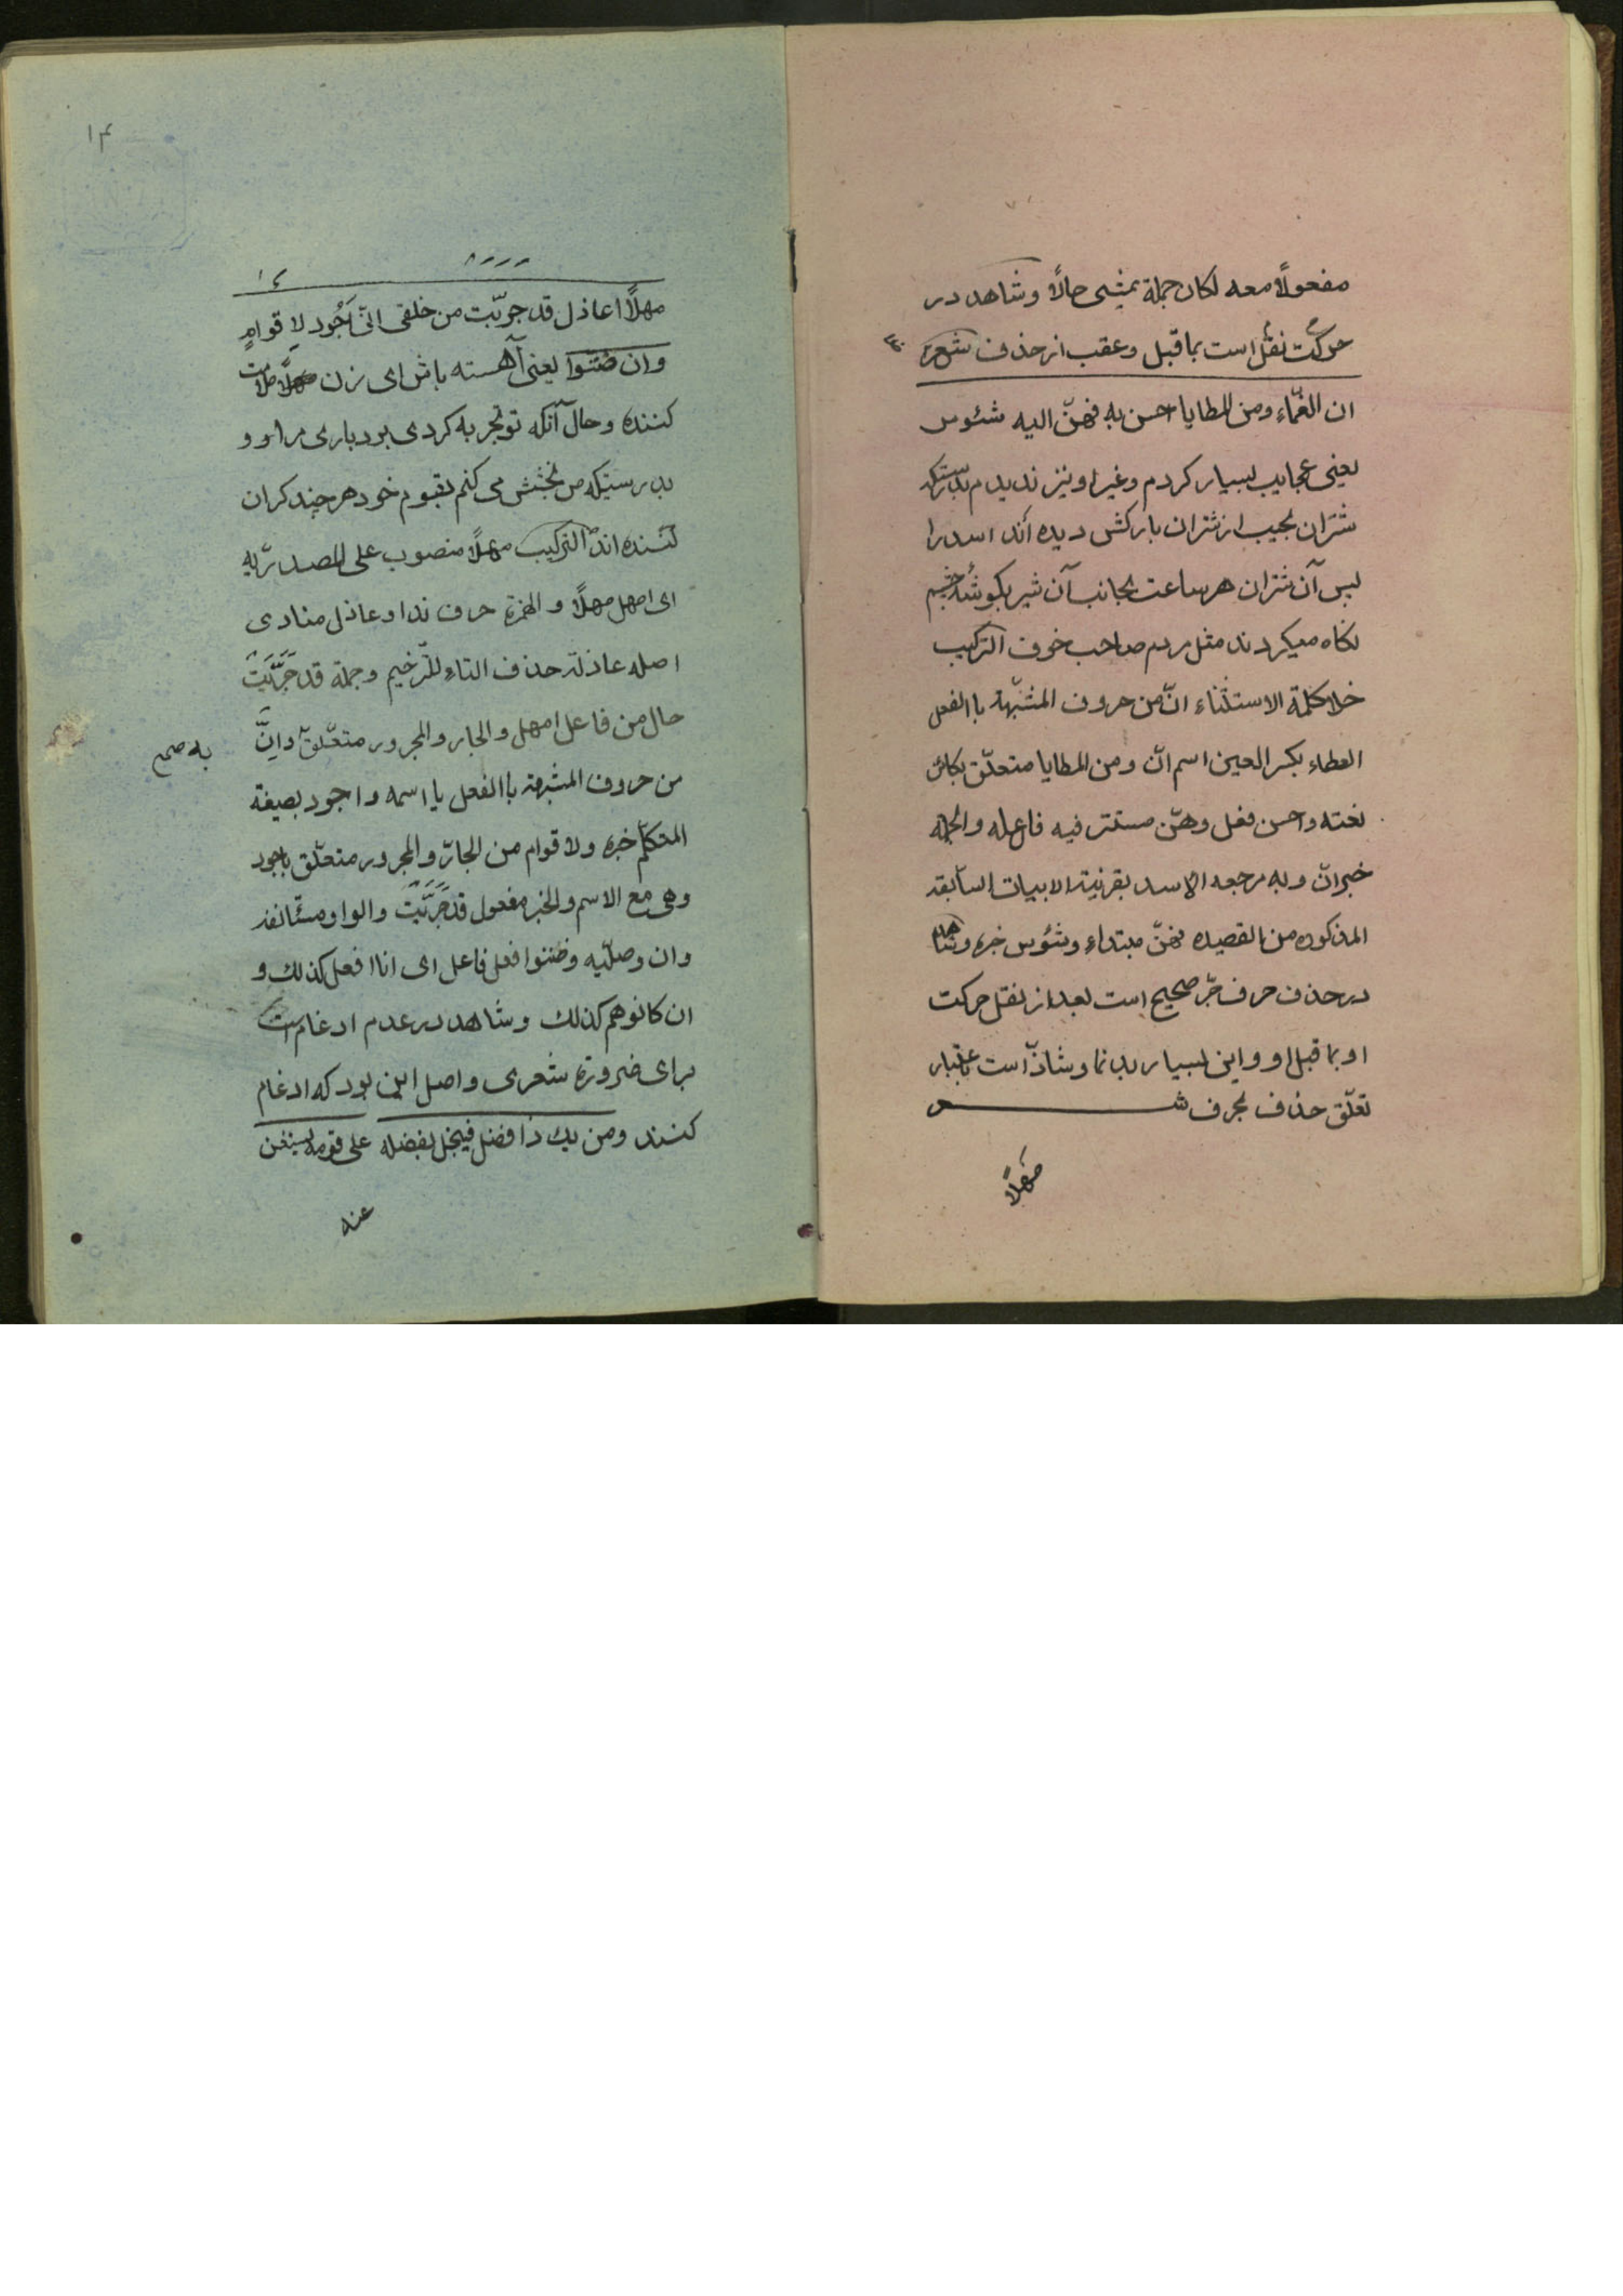 مفعولًا معه لکان جملة یمشی حالًا وشاهد در
حرکت نقل است بما قبل وعقب از حذف شعره
ان العماء ومن المطایا احسن به فهنّ الیه شئوس
یعنی عجایب بسیار کردم وغیر او نیز ندیدم بدرستیکه
شتران نجیب از شتران بارکش دیده اند اسد را
پس آن شتران هر ساعت بجانب آن شیر بکوشه چشم
نکاه میکردند مثل مردم صاحب خوف الترکیب
خلا کلمة الاستثناء انّ من حروف المشبّهة باالفعل
العطاء بکسر العین اسم انّ ومن المطایا متعلّق بکائن
نعته واحسن فعل وهنّ مستتر فیه فاعله والجملة
خبر انّ وبه مرجعه الاسد بقرنیة الابیات السابقة
المذکوره من القصیده فهنّ مبتداء وشئوس خبره وشاهد
در حذف حرف جرّ صحیح است بعد از نقل حرکت
او بما قبل او واین بسیار بدنما وشاذّ است باعتبار
تعلّق حذف بحرف شعر
مَهلًا
۱۴
مهلًا اعاذل قد جرّبت من خلقی انّی اَجُود لِاقوامٍ
وان ضننوا یعنی آهسته باش ای زن ملامت
کننده وحال آنکه تو تجربه کردی بردباری مرا و
بدرستیکه من بخشش می کنم بقوم خود هر چند کران
کننده اند الترکیب مهلًا منصوب علی المصدرّیه
ای امهل مهلًا والهمزة حرف ندا وعاذل منادی
اصله عاذلة حذف التاء للتّرخیم وجملة قد جَرَّبَتَ
حال من فاعل امهل والجار والمجرور متعّلق وانَّ
به صح
من حروف المشبهة باالفعل یا اسمه واجود بصیغة
المتکلّم خبره ولاقوام من الجارّ والمجرور متعلّق باجود
وهی مع الاسم والخبر مفعول قد جَرَّبَتَ والواو مستأنفة
وان وصلّیه وضننوا فعل فاعل ای انا افعل کذلك و
ان کانوهم کذلك وشاهد در عدم ادغام است
برای ضرورة شعری واصل این بود که ادغام
کنند ومن یك ذا فضل فیبخل بفضله علی قومه یستغن
عنه